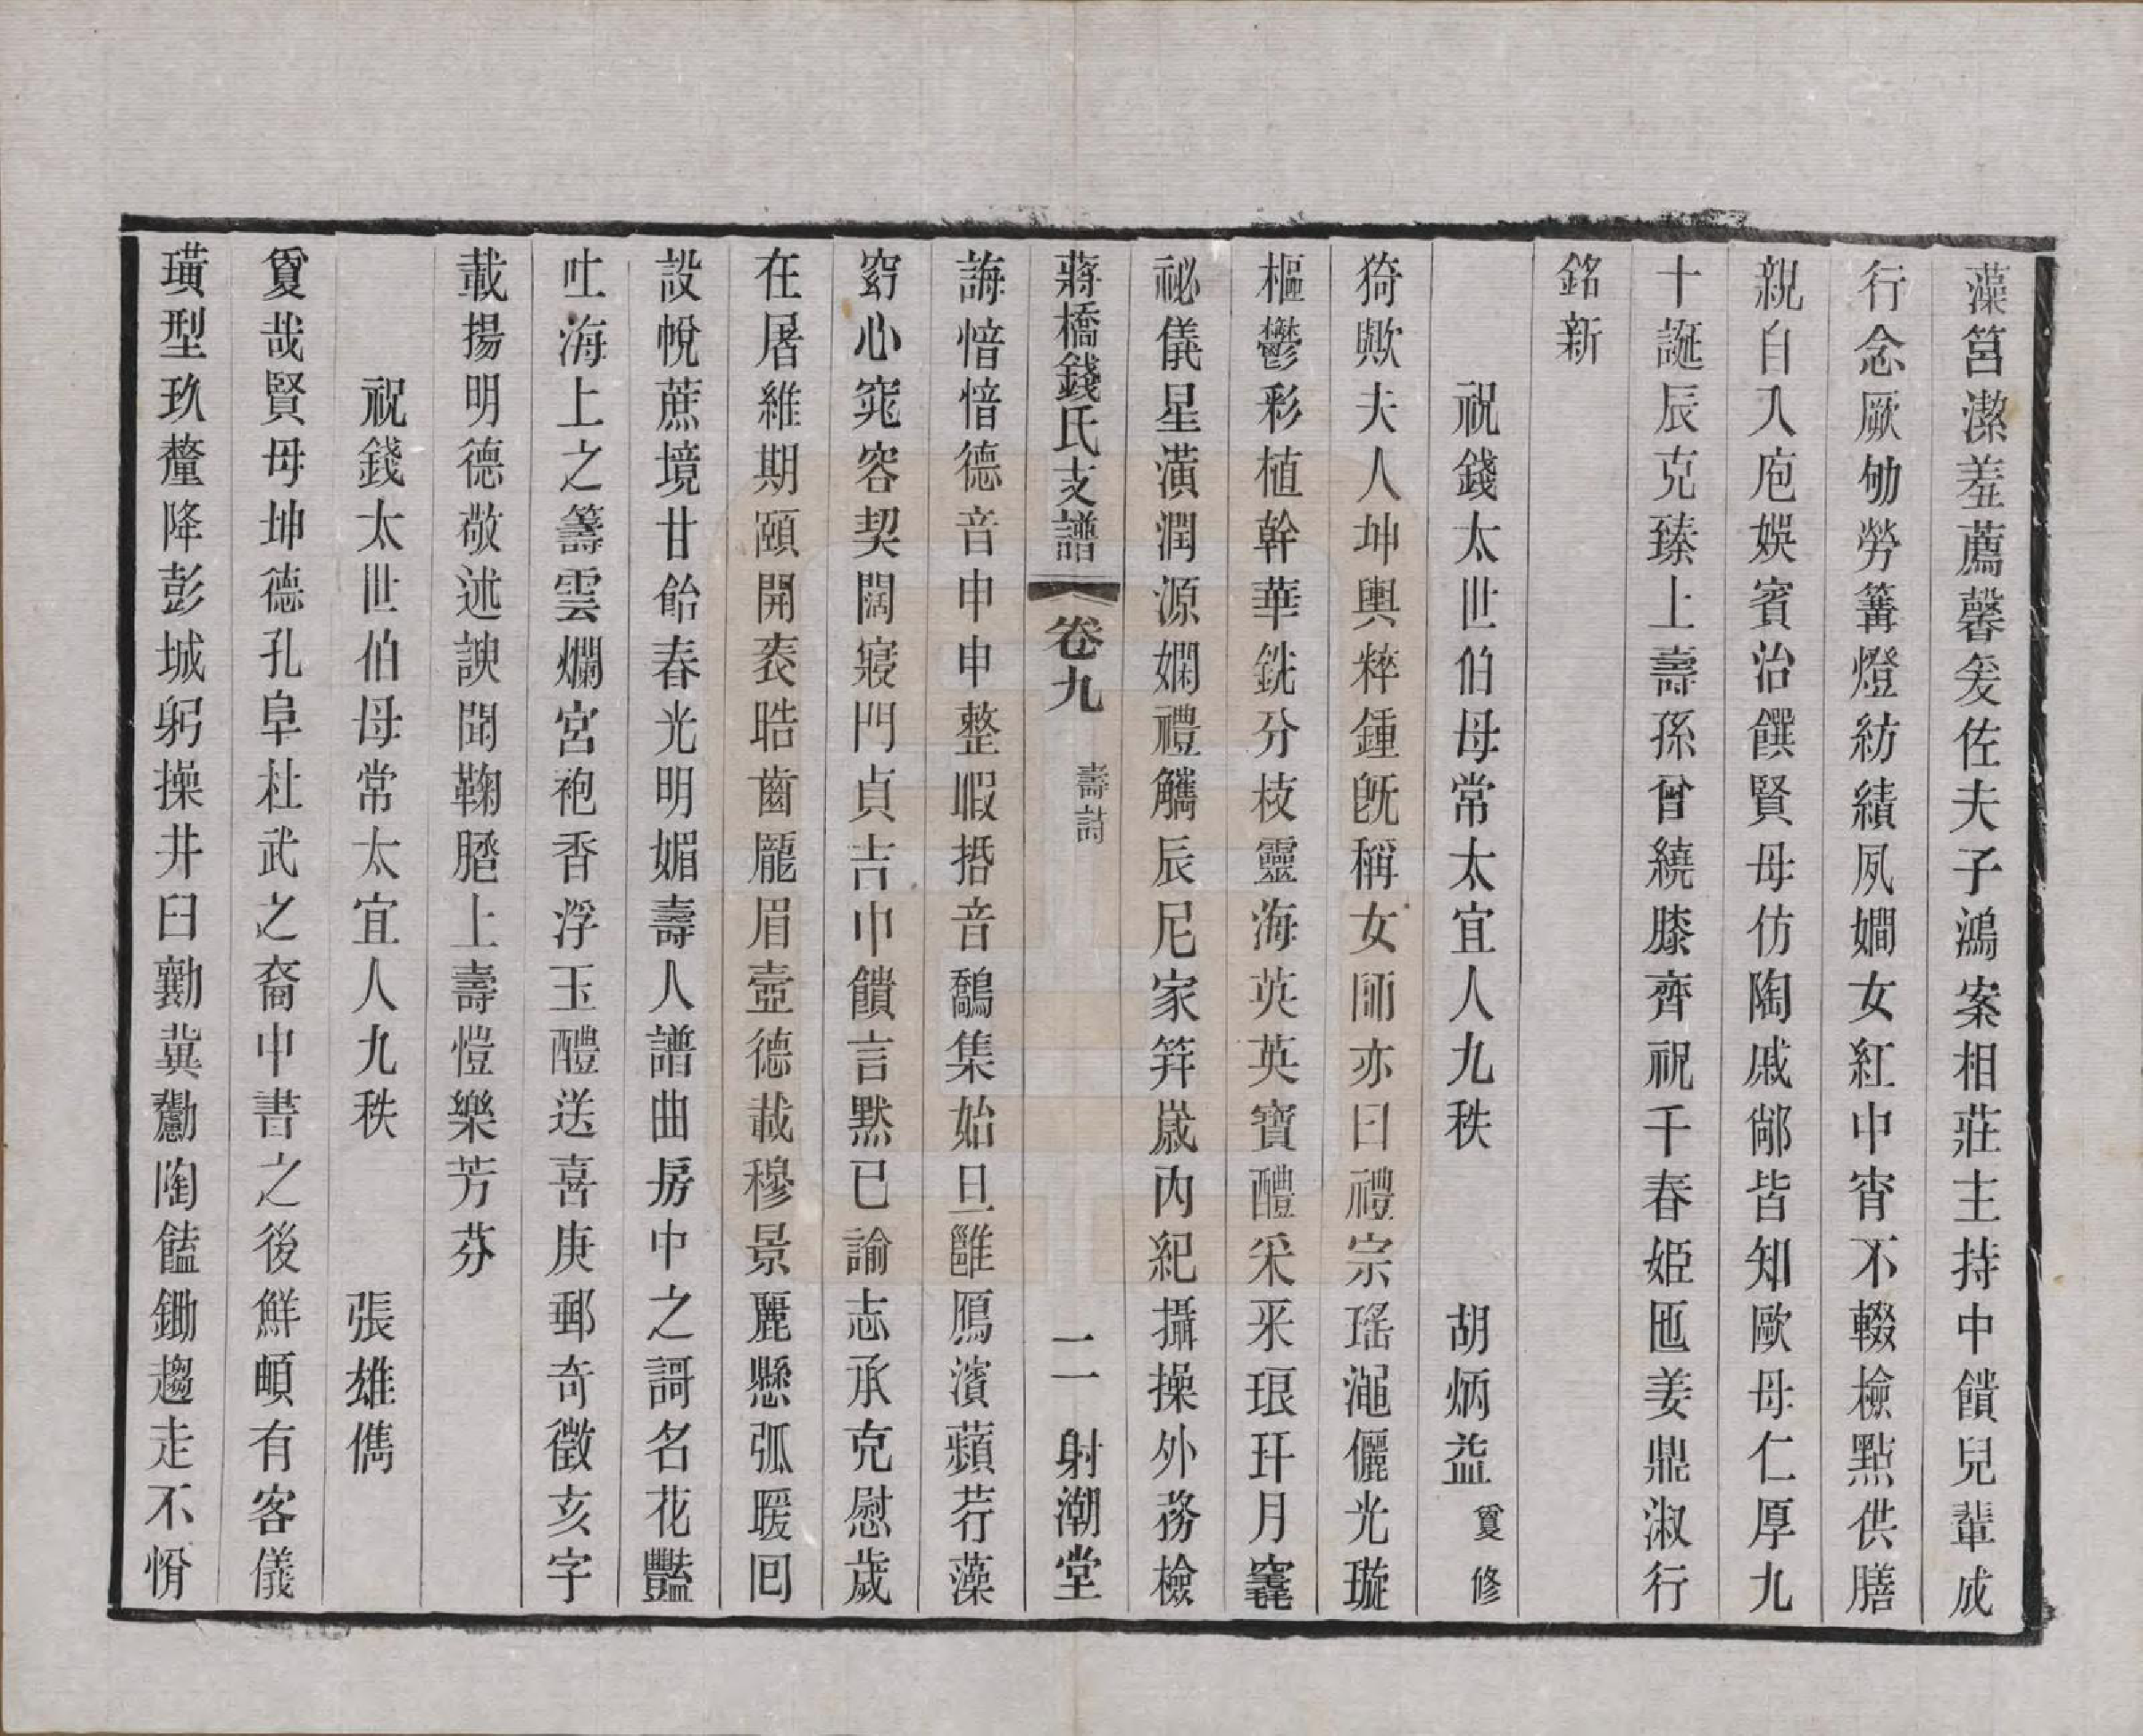 藻筥潔羞薦馨矣佐夫子鴻案相莊主持中饋兒輩成
行念厥劬勞篝燈紡績夙嫺女紅中宵不輟檢點供膳
親自入庖娛賓治饌賢母仿陶戚鄰皆知歐母仁厚九
十誕辰克臻上壽孫曾繞膝齊祝千春姬匜姜鼎淑行
銘新
祝錢太世伯母常太宜人九秩 胡炳益 敻修
猗歟夫人坤輿粹鍾旣稱女師亦曰禮宗瑤澠儷光璇
樞鬱彩植幹華銑分枝靈海英英寶醴采采琅玕月窺
祕儀星潢潤源嫻禮觿辰尼家筓歲內紀攝操外務檢
蔣橋錢氏支譜 卷九 壽詩 二 射潮堂
誨愔愔德音申申整暇捂音鷮集始旦雝鴈濱蘋荇藻
窈心窕容契闊寢門貞吉巾饋言默已諭志承克慰歲
在屠維期頤開袠晧齒龐眉壼德載穆景麗懸弧暖回
設帨蔗境甘飴春光明媚壽人譜曲房中之謌名花豔
吐海上之籌雲爛宮袍香浮玉醴送喜庚郵奇徵亥字
載揚明德敬述諛聞鞠䐛上壽愷樂芳芬
祝錢太世伯母常太宜人九秩 張雄儁
敻哉賢母坤德孔阜杜武之裔中書之後鮮岠有客儀
璜型玖釐降彭城躬操井臼勷冀勸陶饁鋤趨走不愲